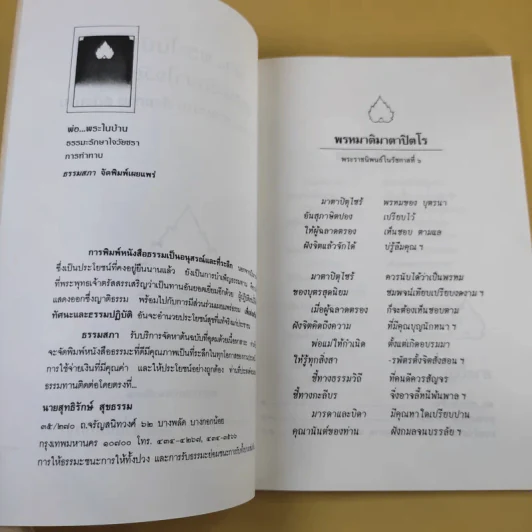 พ่อ...พระในบ้าน
ธรรมะรักษาใจวัยชรา
การทำทาน
ธรรมสภา จัดพิมพ์เผยแพร่
การพิมพ์หนังสือธรรมเป็นอนุสรณ์และที่ระลึก
ซึ่งเป็นประโยชน์ที่คงอยู่ยืนนานแล้ว ยังเป็นการบำเพ็ญธรรมทาน
ที่พระพุทธเจ้าตรัสสรรเสริญว่าเป็นทานอันยอดเยี่ยมอีกด้วย
แสดงออกซึ่งญาติธรรม พร้อมไปกับการมีส่วนร่วมเผยแพร่ธรรม
ทัศนะและธรรมปฏิบัติ อันจะอำนวยประโยชน์สุขที่แท้จริง
ธรรมสภา รับบริการจัดหาต้นฉบับที่อุดมด้วยเนื้อหาสาระ
จะจัดพิมพ์หนังสือธรรมะที่ดีมีคุณภาพเป็นที่ระลึกในทุกโอกาส
การใช้จ่ายเงินที่มีคุณค่า และให้ประโยชน์อย่างถูกต้อง
ธรรมทานติดต่อโดยตรงที่...
นายสุทธิรักษ์ สุขธรรม
๓๕/๒๗๐ ถ.จรัญสนิทวงศ์ ๖๒ บางพลัด บางกอกน้อย
กรุงเทพมหานคร ๑๐๗๐๐ โทร.
การให้ธรรมะชนะการให้ทั้งปวง และการรับธรรมะย่อมชนะการรับทั้ง
พรหมาติมาตาปิตโร
พระราชนิพนธ์ในรัชกาลที่ ๖
มาตาปิตุไซร้ พรหมของ บุตรนา
อันสุภาษิตปอง เปรียบไว้
ให้ผู้ฉลาดตรอง เห็นชอบ ตามแล
ฟังจิตแล้วจักได้ ปรู้ลืมคุณ ฯ
มาตาปิตุไซร้ ควรนับได้ว่าเป็นพรหม
ของบุตรสุดนิยม ชมพจน์เทียบเปรียบงดงาม ฯ
เมื่อผู้ฉลาดตรอง ก็จะต้องเห็นชอบตาม
ฟังจิตคิดถึงความ ที่มีคุณบุญนักหนา ฯ
พ่อแม่ให้กำเนิด ตั้งแต่เกิดบรมมา
ให้รู้ทุกสิ่งสา -รพัตรตั้งจิตสั่งสอน ฯ
ชี้ทางธรรมวิถี ที่คนดีควรสัญจร
ชี้ทางกะลีบร จึ่งอาจลี้หนีพ้นพาล ฯ
มารดาและบิดา มีคุณหาใดเปรียบปาน
คุณานันต์ของท่าน ฝังกมลจนบรรลัย ฯ